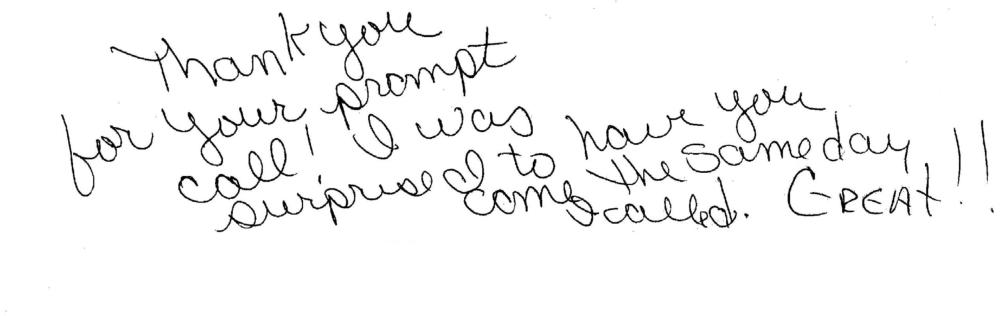 Thank you
for your prompt
call! I was
surprised to have you
come the same day
I called. GREAT!!